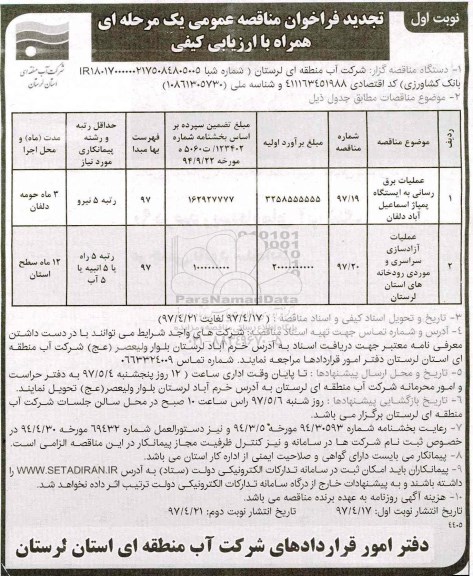 نوبت اول
تجدید فراخوان مناقصه عمومی یک مرحله ای
همراه با ارزیابی کیفی
شرکت آب منطقه ای لرستان
۱- دستگاه مناقصه گزار: شرکت آب منطقه ای لرستان ( شماره شبا IR۱۸۰۱۷۰۰۰۰۰۰۲۱۷۵۰۸۴۸۰۵۰۰۵
بانک کشاورزی) کد اقتصادی ۴۱۱۱۶۳۴۵۱۹۸۸ و شناسه ملی (۱۰۸۶۱۳۰۵۷۳۰)
۲- موضوع مناقصات مطابق جدول ذیل
ردیف | موضوع مناقصه | شماره مناقصه | مبلغ برآورد اولیه | مبلغ تضمین سپرده بر اساس بخشنامه شماره ۱۲۳۴۰۲/ت۵۰۶۵۹ ه مورخه ۹۴/۹/۲۲ | فهرست بها مبدا | حداقل رتبه و رشته پیمانکاری مورد نیاز | مدت (ماه) و محل اجرا
۱ | عملیات برق رسانی به ایستگاه پمپاژ اسماعیل آباد دلفان | ۹۷/۱۹ | ۳۲۵۸۵۵۵۵۵۵ | ۱۶۲۹۲۷۷۷۷ | ۹۷ | رتبه ۵ نیرو | ۳ ماه حومه دلفان
۲ | عملیات آزادسازی سراسری و موردی رودخانه های استان لرستان | ۹۷/۲۰ | ۲۰۰۰۰۰۰۰۰۰ | ۱۰۰۰۰۰۰۰۰ | ۹۷ | رتبه ۵ راه یا ۵ ابنیه یا ۵ آب | ۱۲ ماه سطح استان
۳- تاریخ و تحویل اسناد کیفی و اسناد مناقصه : ( ۹۷/۴/۱۷ لغایت ۹۷/۴/۲۱)
۴- آدرس و شماره تماس جهت تهیه اسناد مناقصه: شرکت های واجد شرایط می توانند با در دست داشتن
معرفی نامه معتبر جهت دریافت اسناد به آدرس خرم آباد لرستان بلوار ولیعصر (عج) شرکت آب منطقه
ای استان لرستان دفتر امور قراردادها مراجعه نمایند. شماره تماس ۰۶۶۳۳۲۴۰۰۹
۵- تاریخ و محل ارسال پیشنهادها : تا پایان وقت اداری ساعت ( ۱۲ روز پنجشنبه ۹۷/۵/۴ به دفتر حراست
و امور محرمانه شرکت آب منطقه ای لرستان به آدرس خرم آباد لرستان بلوار ولیعصر(عج) تحویل نمایند.
۶- تاریخ بازگشایی پیشنهادها : روز شنبه ۹۷/۵/۶ راس ساعت ۱۰ صبح در محل سالن جلسات شرکت آب
منطقه ای لرستان برگزار می باشد.
۷- رعایت بخشنامه شماره ۹۴/۳۰۵۹۳ مورخه ۹۴/۳/۵ و نیز دستورالعمل شماره ۶۹۴۳۲ مورخه ۹۴/۴/۳۰ در
خصوص ثبت نام شرکت ها در سامانه و نیز کنترل ظرفیت مجاز پیمانکار در این مناقصه الزامی است.
۸- پیمانکار می بایست دارای گواهی و صلاحیت ایمنی از اداره کار استان می باشد.
۹- پیمانکاران باید امکان ثبت در سامانه تدارکات الکترونیکی دولت (ستاد) به آدرس WWW.SETADIRAN.IR را
داشته باشند و به پیشنهادات خارج از درگاه سامانه تدارکات الکترونیکی دولت ترتیب اثر داده نخواهد شد.
۱۰- هزینه آگهی روزنامه به عهده برنده مناقصه می باشد.
تاریخ انتشار نوبت اول: ۹۷/۴/۱۷ تاریخ انتشار نوبت دوم: ۹۷/۴/۲۱
۴۴۰۵
دفتر امور قراردادهای شرکت آب منطقه ای استان لرستان